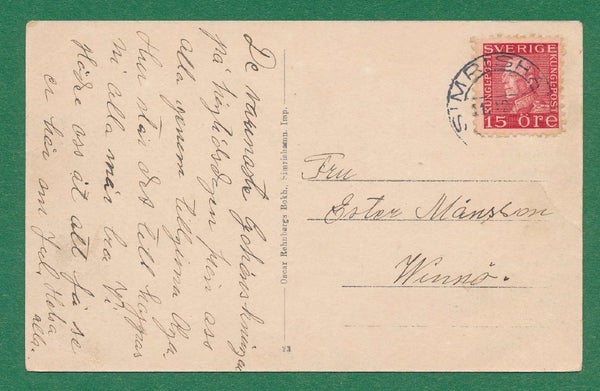 De varmaste lyckönskningar
på högtidsdagen från oss
alla genom tillgifna Olga.
Hur står det till hoppas
ni alla mår bra Vi
gläder oss åt att få se
er här om Jul. Hälsa
alla.
Oscar Rehnbergs Bokh., Simrishamn Imp.
23
SVERIGE
KUNGLPOST
KUNGLPOST
15 ÖRE
SIMRISH
Fru
Ester Månsson
Winnö.